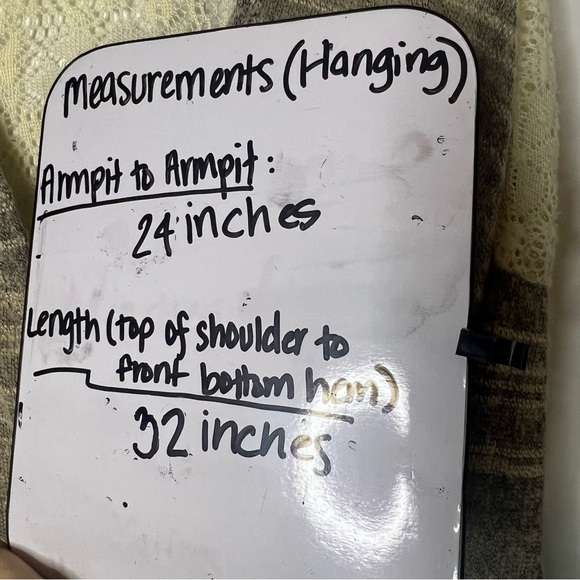 Measurements (Hanging)
Armpit to Armpit:
24 inches
Length (top of shoulder to
front bottom hem)
32 inches